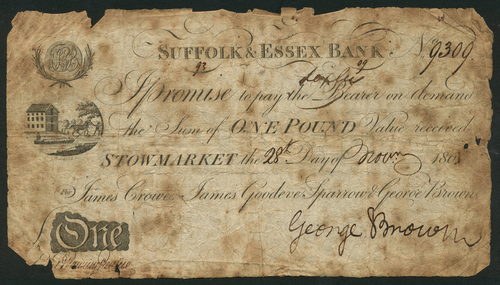 SUFFOLK & ESSEX BANK No 9309
I Promise to pay the Bearer on demand
the Sum of ONE POUND Value received
STOWMARKET the 28th Day of Novr 180
For James Crowe, James Goodeve Sparrow & George Brown
George Brown
One